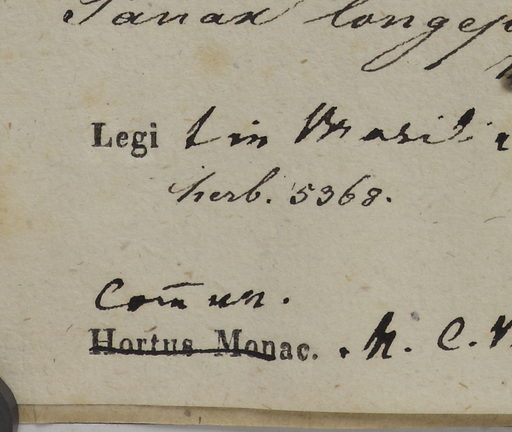 Panax longep
Legit in Brasil
herb. 5368.
Com̅un.
Hortus Monac. . M. C.